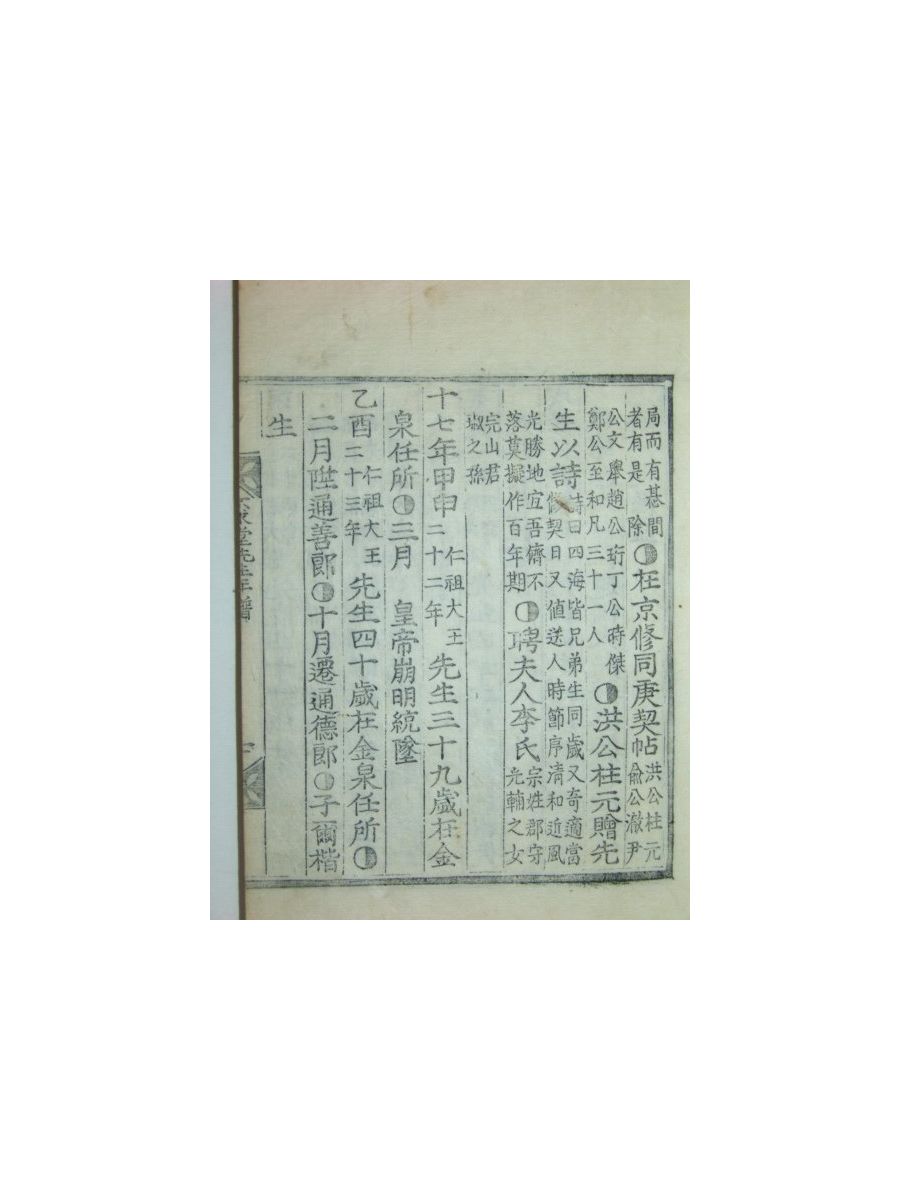 局而有碁間
者有是 除 ◐在京修同庚契帖 洪公柱元
兪公澈尹
公文擧趙公珩丁公時傑
鄭公至和凡三十一人 ◐洪公柱元贈先
生以詩 詩曰四海皆兄弟生同歲又奇適當
修契日又値送人時節序清和近風
光勝地宜吾儕不
落莫擬作百年期 ◐聘夫人李氏 宗姓郡守
光輔之女
完山君
之孫
十七年甲申 仁祖大王
二十二年 先生三十九歲在金
泉任所◐三月 皇帝崩明統墜
乙酉 仁祖大王
二十三年 先生四十歲在金泉任所◐
二月陞通善郎◐十月遷通德郎◐子爾楷
生
堂先生年譜